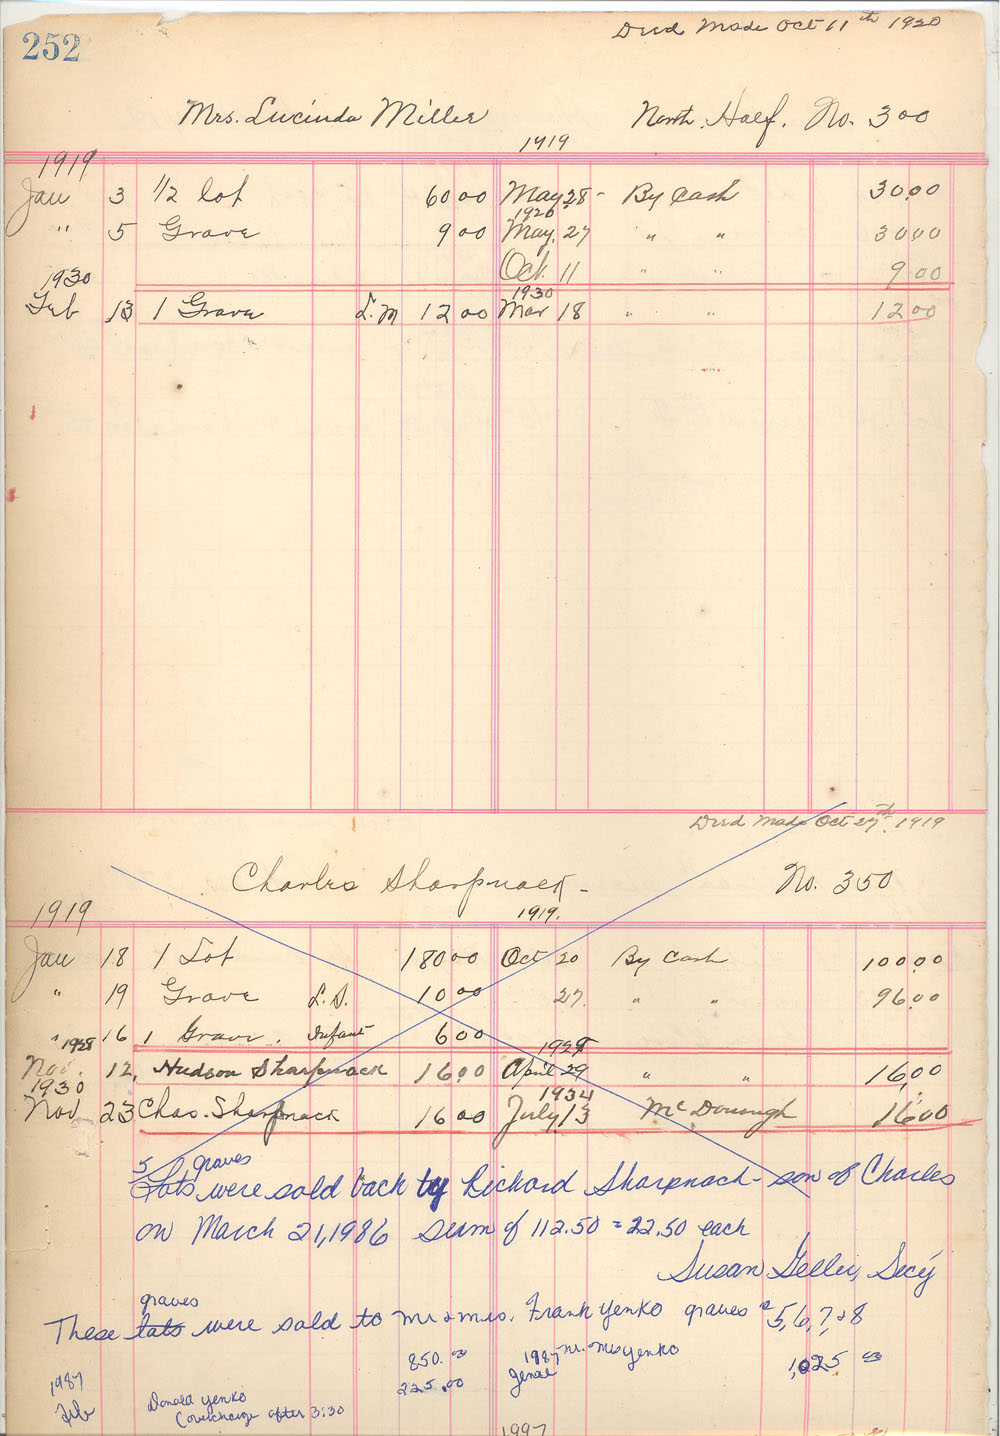 252
Deed Made Oct 11th 1920
Mrs. Lucinda Miller North Half. No. 300
1919 1919
Jan 3 1/2 lot 60 00 May 28 - By Cash 30.00
1920
" 5 Grave 9 00 May. 27 " " 30.00
Oct. 11 " " 9 00
1930 1930
Feb 13 1 Grave L.M 12 00 Mar 18 " " 12 00
Deed Made Oct 27th. 1919
Charles Sharpnack - No. 350
1919 1919.
Jan 18 1 Lot 180 00 Oct 20 By Cash 100.00
" 19 Grave L.S. 10 00 27. " " 96.00
" 16 1 Grave. Infant 6 00
1928 1929
Nov. 12, Hudson Sharpnack 16.00 April 29 " " 16,00
1930 1934
Nov 23 Chas. Sharpnack 16 00 July 13 McDonough 16.00
5 graves
Lots were sold back by Richard Sharpnack - son of Charles
on March 21, 1986 sum of 112.50 = 22.50 each
Susan Geller, Secy
graves
These lots were sold to Mr & Mrs. Frank Yenko graves # 5, 6, 7, & 8
850.00 1987 Mr. Mrs Yenko 1,025 00
1987 225.00
Feb Donald Yenko
(overcharge after 3:30
1997